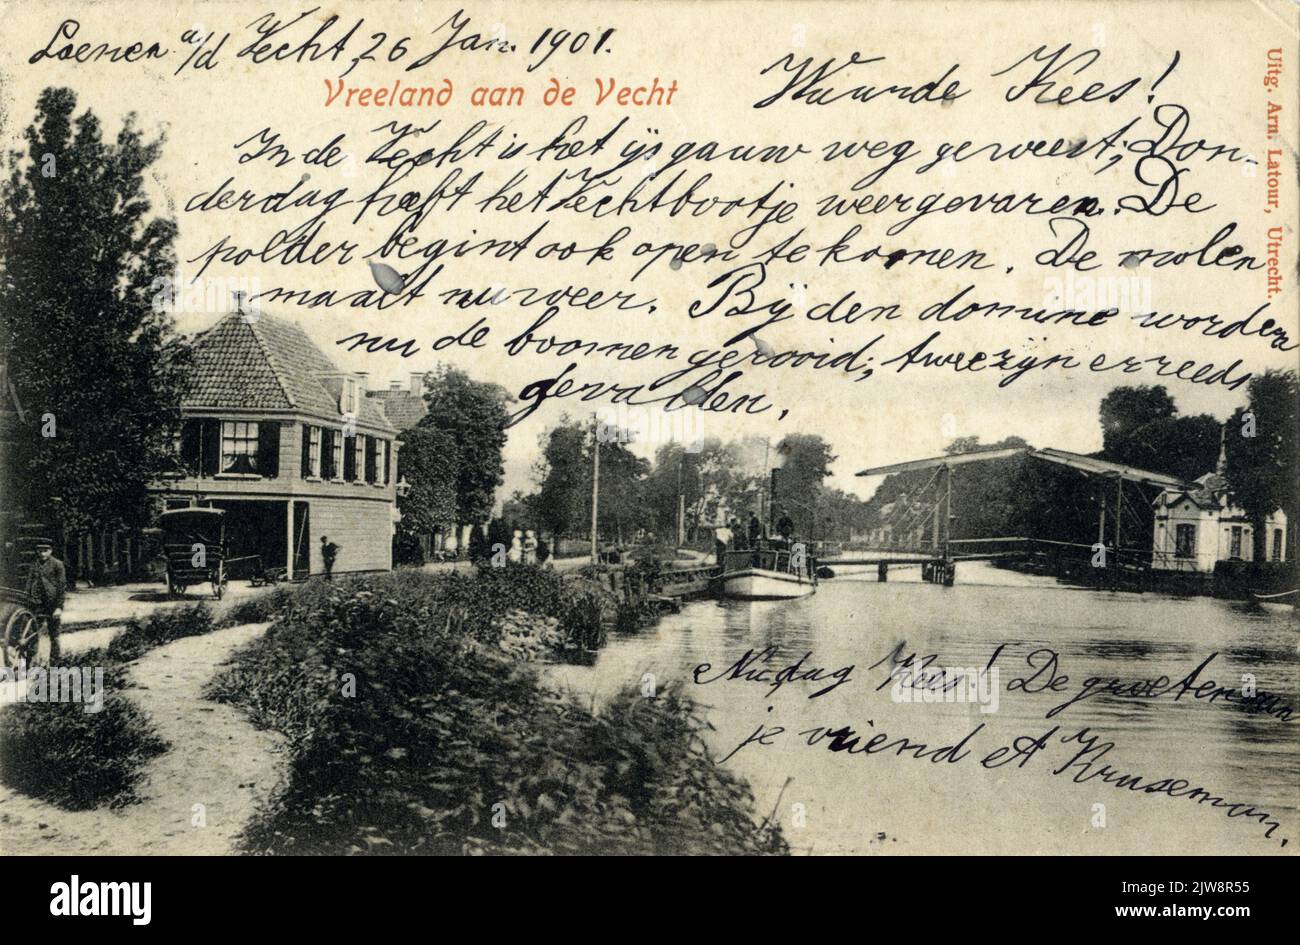 Loenen a/d Vecht, 26 Jan. 1901.
Vreeland aan de Vecht
Waarde Kees!
In de Vecht is het ijs gauw weg geweest; Don-
derdag heeft het Vechtbootje weer gevaren. De
polder begint ook open te komen. De molen
maalt nu weer. Bij den domine worden
nu de boomen gerooid; twee zijn er reeds
gevallen.
Nu, dag Kees! De groeten van
je vriend A Kruseman.
Uitg. Arn. Latour, Utrecht.
alamy
alamy
Image ID: 2JW8R55
www.alamy.com